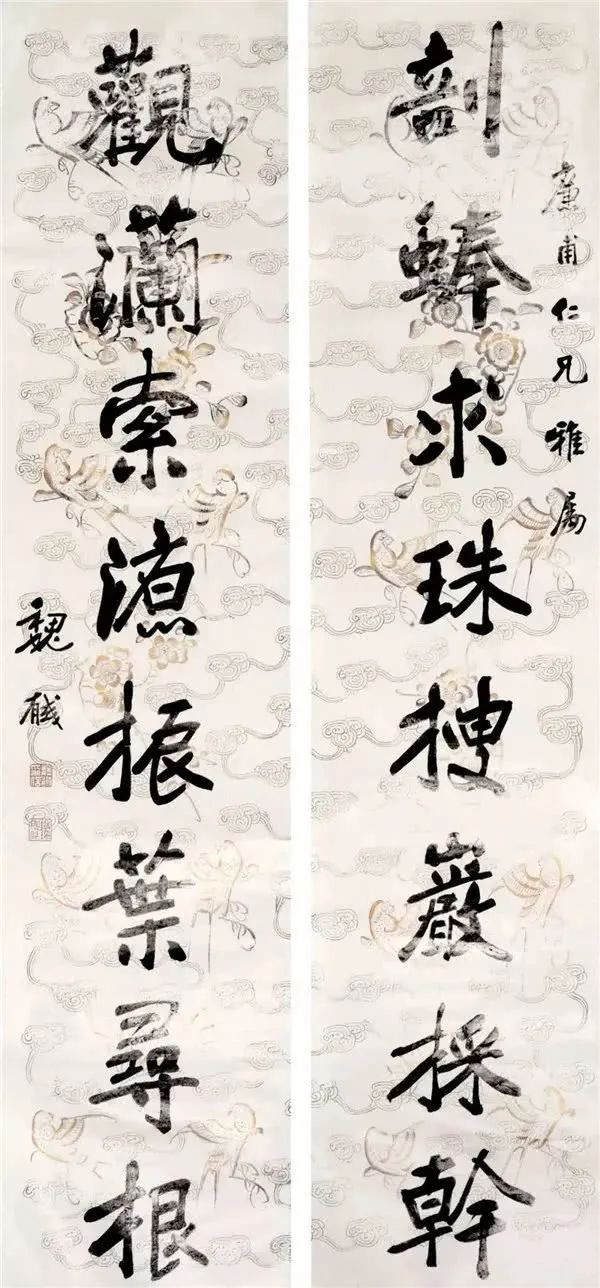 廉甫仁兄雅屬
剖蜯求珠搜巖採幹
觀瀾索源振葉尋根
魏戫